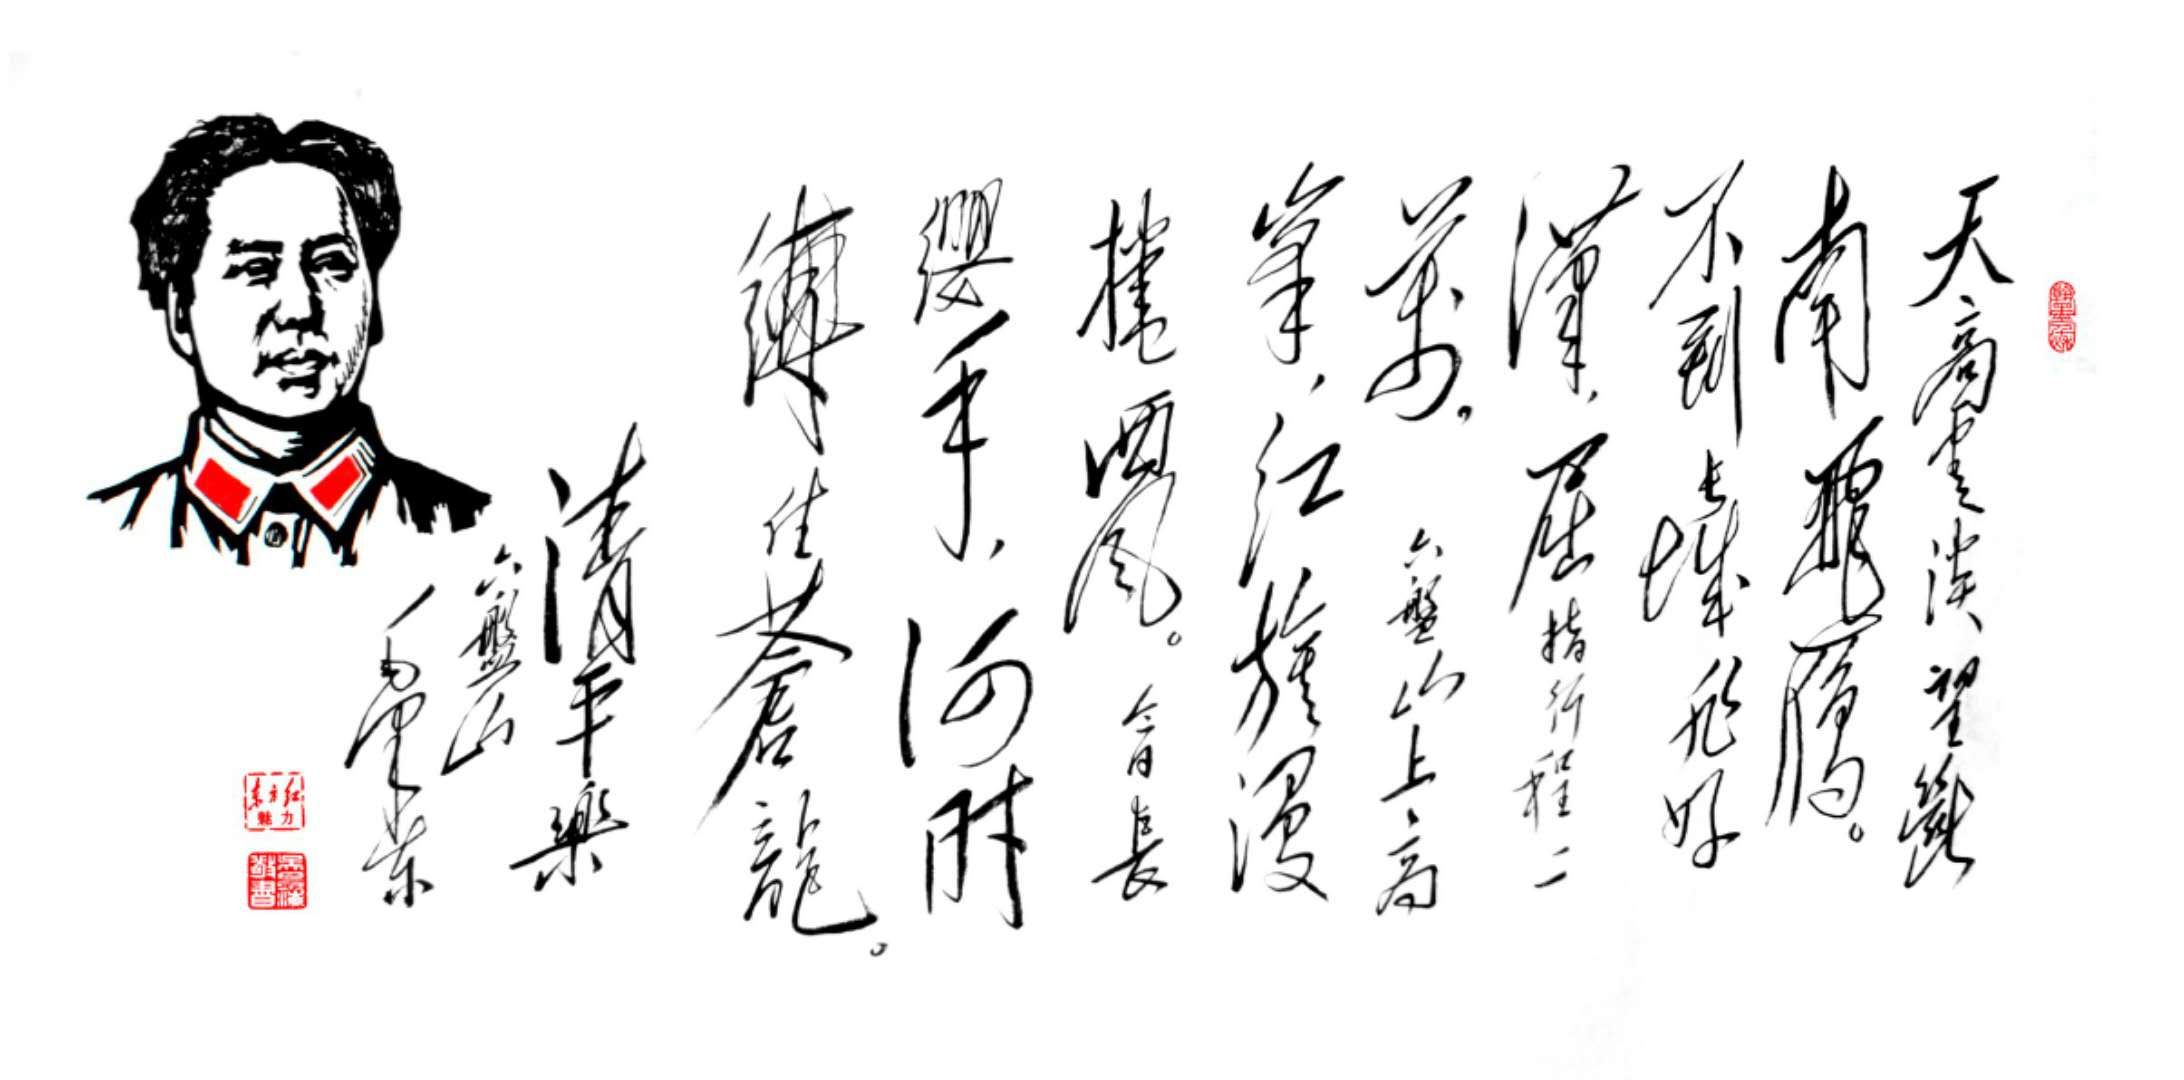 天高雲淡望斷
南飛雁。
不到長城非好
漢,屈指行程二
萬。六盤山上高
峯,紅旗漫
捲西風。今日長
纓在手,何時
縛住蒼龍。
清平樂
六盤山
毛澤東
红方东
魅力